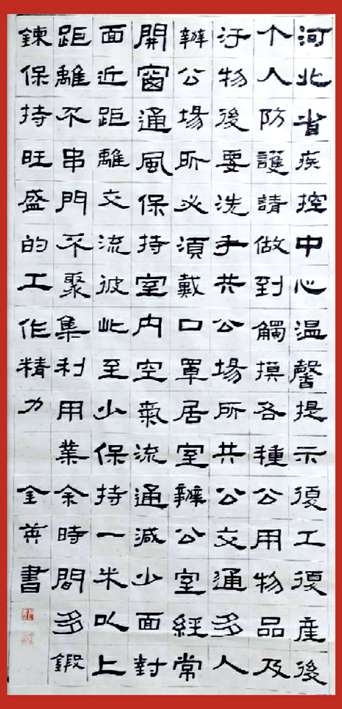 河北省疾控中心温馨提示復工復産後
个人防護請做到觸摸各種公用物品及
汙物後要洗手共公場所共公交通多人
辦公場所必須戴口罩居室辦公室經常
開窗通風保持室内空氣流通減少面對
面近距離交流彼此至少保持一米以上
距離不串門不聚集利用業余時間多鍛
鍊保持旺盛的工作精力 書